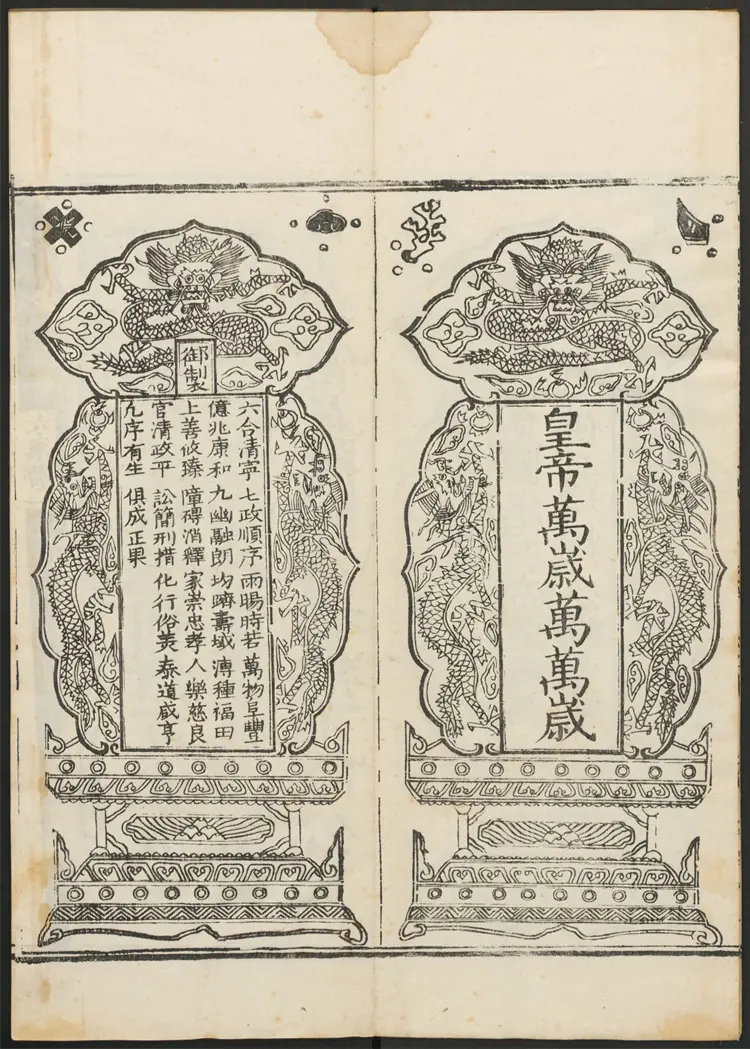 皇帝萬歳萬萬歳
御製
六合清寧 七政順序 雨暘時若 萬物阜豐
億兆康和 九幽融朗 均躋壽域 溥種福田
上善攸臻 障碍消釋 家崇忠孝 人樂慈良
官清政平 訟簡刑措 化行俗美 泰道咸亨
凢序有生 俱成正果